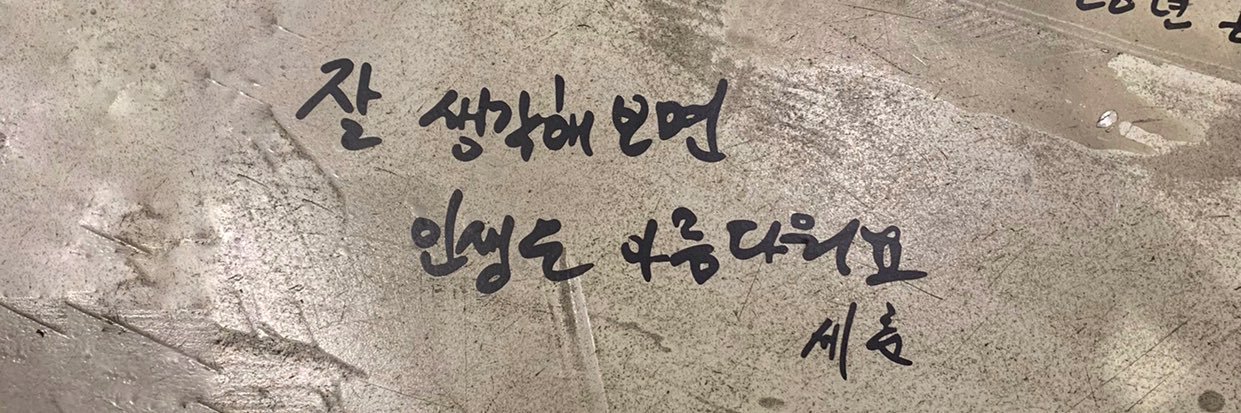 년
잘 생각해 보면
인생도 아름다워요